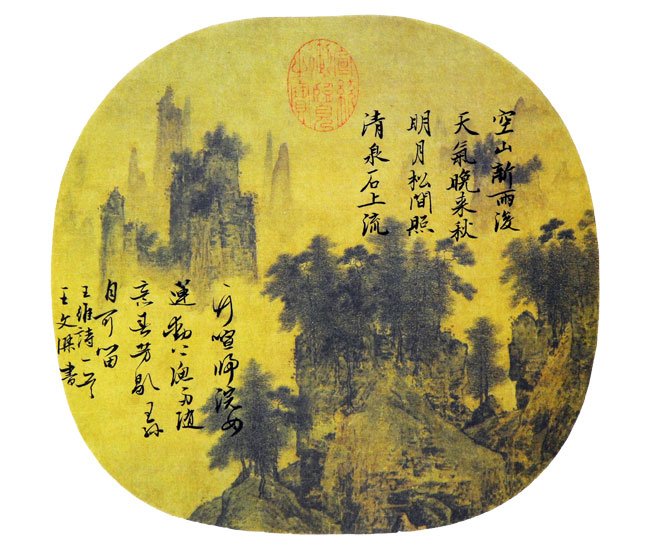 空山新雨後
天氣晚来秋
明月松間照
清泉石上流
竹喧歸浣女
蓮動下漁舟随
意春芳歇王孫
自可留
王維詩一首
王文書